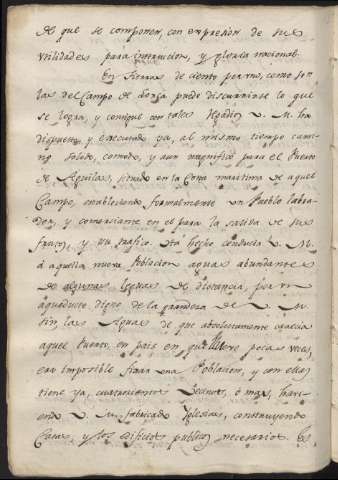 de que se componen, con expresion de sus
utilidades para instruccion, y gloria nacional.
En tierras de ciento por uno, como son
las del Campo de Lorca puede discurrirse lo que
se logra, y consigue con tales Riegos. V. M. ha
dispuesto, y executado ya, al mismo tiempo cami-
no solido, comodo, y aun magnifico para el Puerto
de Aguilas, situado en la Costa maritima de aquel
Campo, estableciendo formalmente un Pueblo labra-
dor, y comerciante en el para la salida de sus
frutos, y su trafico. Ha hecho conducir V. M.
á aquella nueva Poblacion aguas abundantes
de algunas leguas de distancia, por un
aqueducto digno de la grandeza de V. M.
Sin las Aguas de que absolutamente carecia
aquel Puerto, en pais en que llueve pocas veces,
era imposible fixar una Poblacion, y con ellas
tiene ya, cuatrocientos vecinos, ó mas, havi-
endo V. M. fabricado Iglesias, construyendo
Casas, y los edificios publicos necesarios &c,